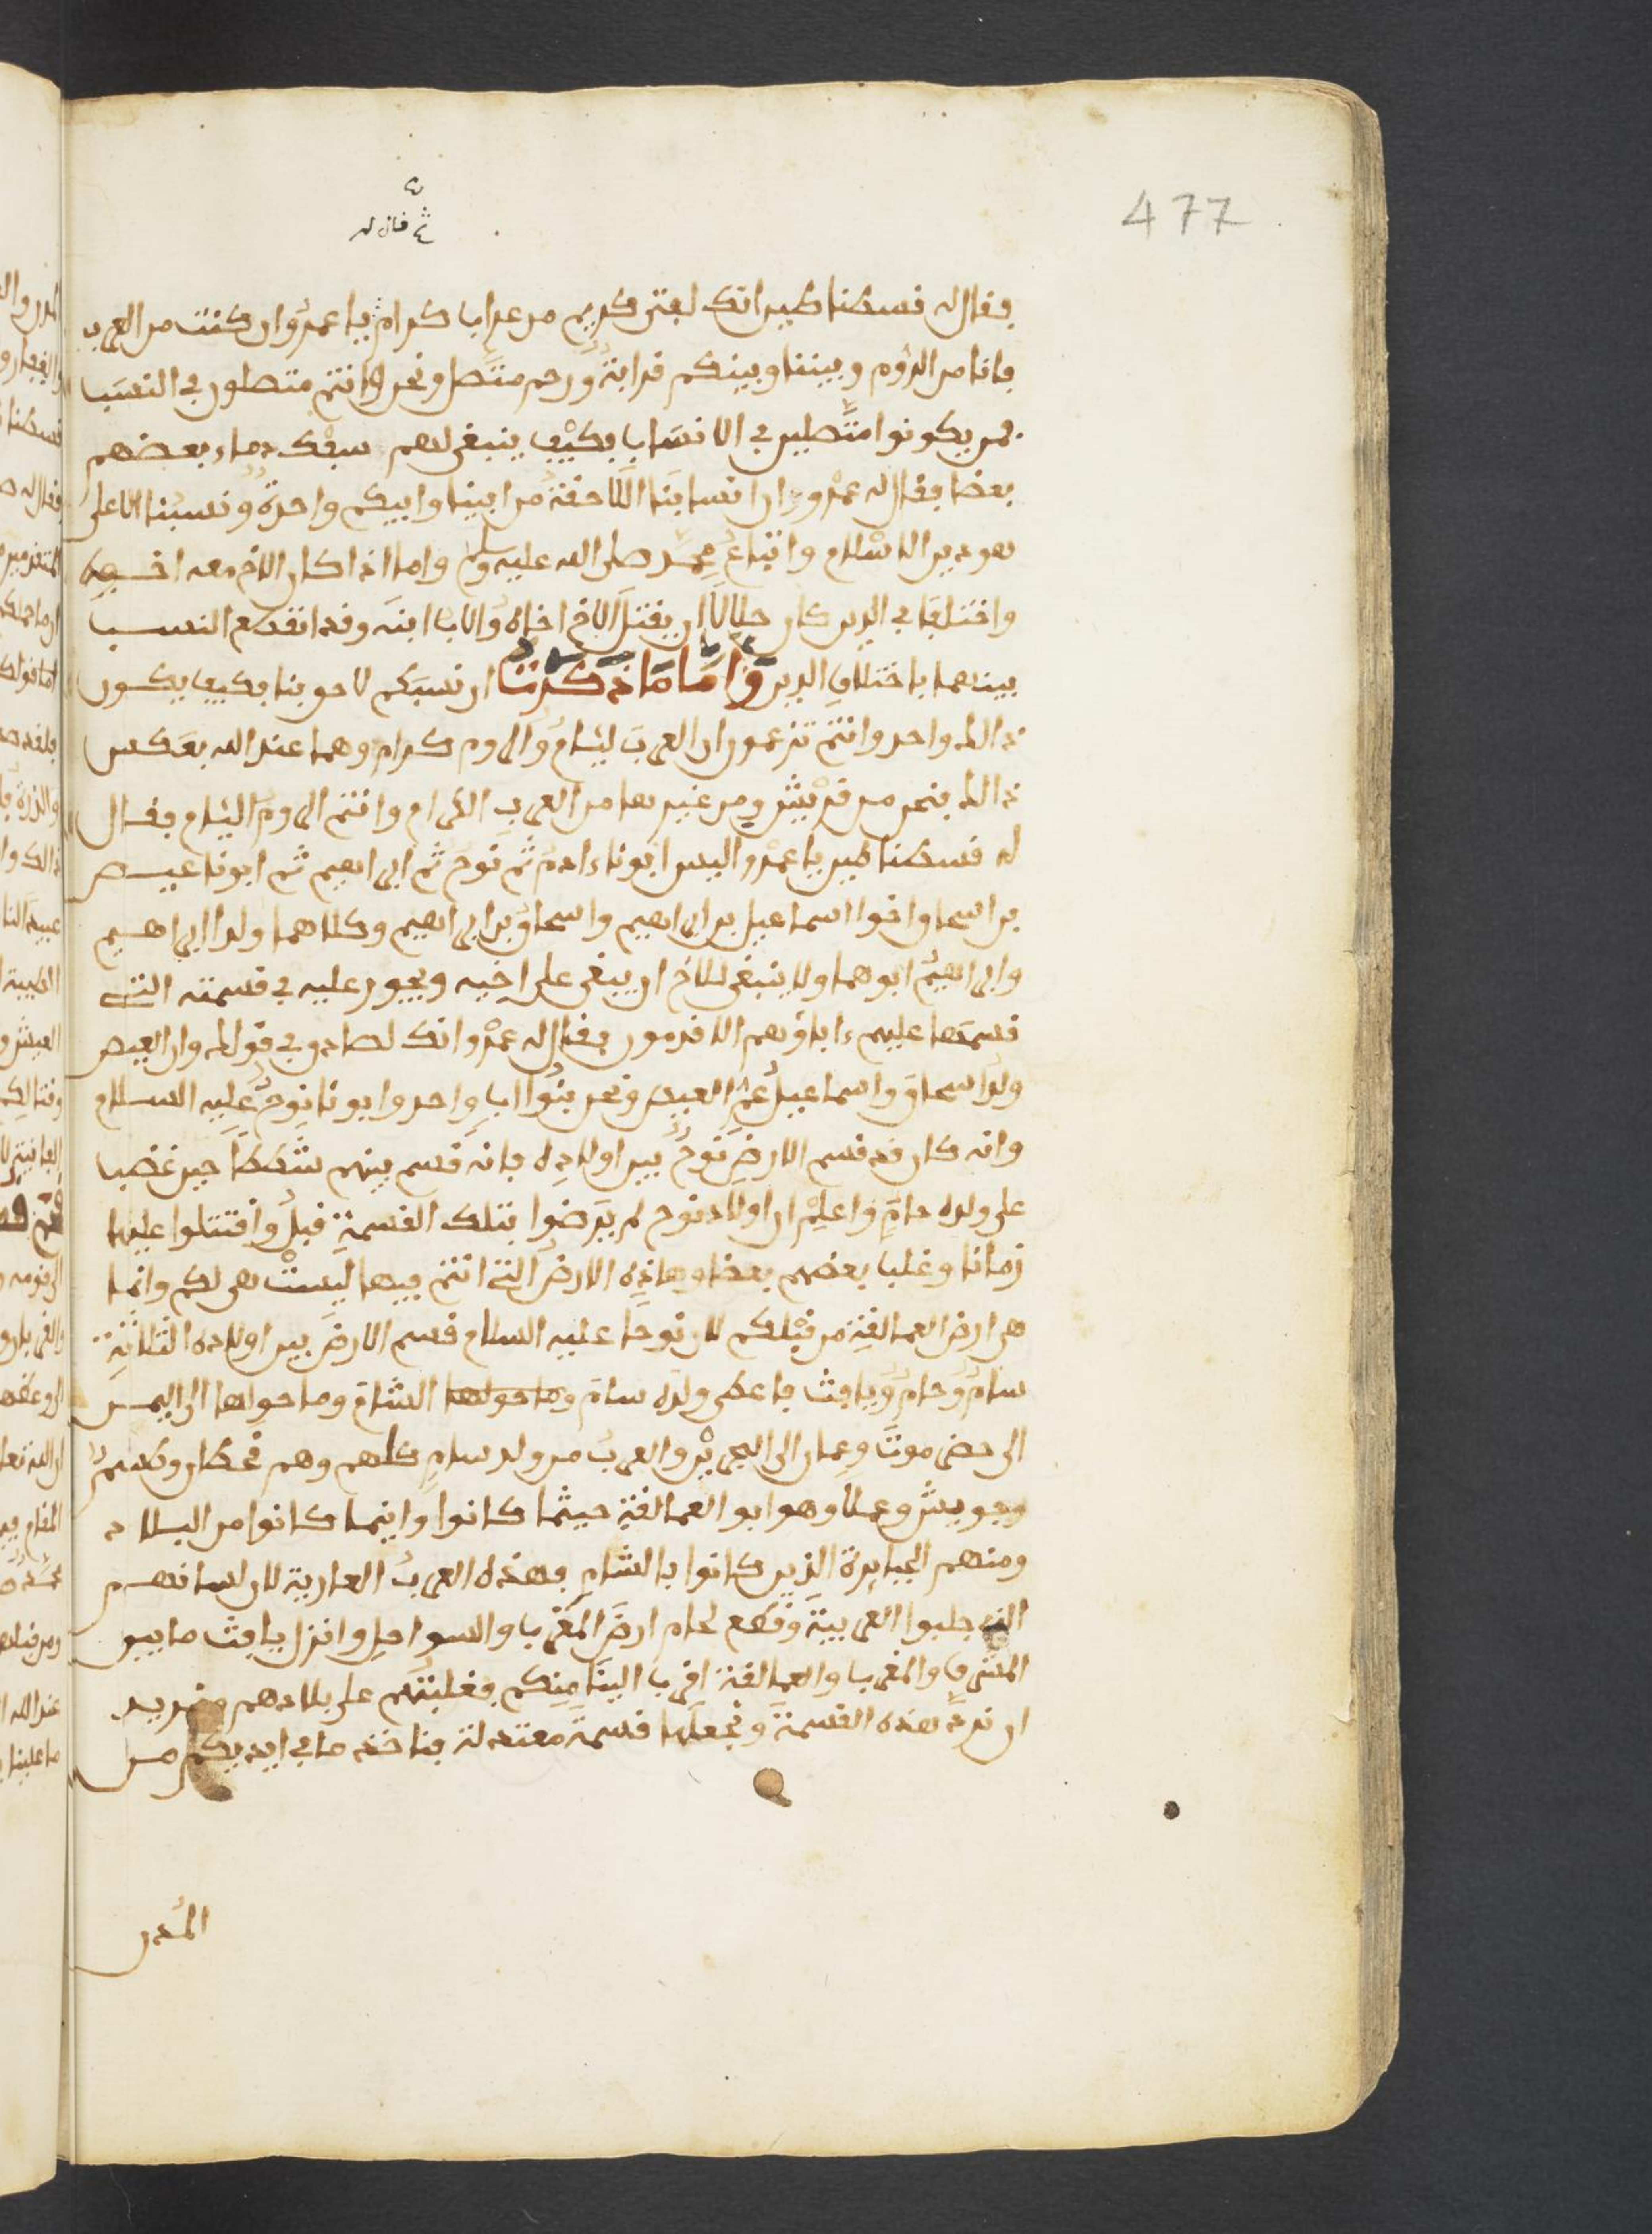 477
ثم قال له
فقال له قسطنطين انك لفتى كريم من عرابا كرام يا عمرو وان كنت من العرب
فانا من الروم وبيننا وبينكم قرابة ورحم متصل ونحن وانتم متصلون في النسب
فمن يكونوا متصلين في الانساب فكيف ينبغي لهم سفك دماء بعضهم
بعضا فقال له عمرو ان انسابنا اللاحقة من ابينا وابيكم واحدة ونسبنا الاعلى
هو دين الاسلام واتباع محمد صلى الله عليه وسلم واما اذا كان الاخ معه اخيه
واختلفا في الدين كان حلالا ان يقتل الاخ اخاه والاب ابنه وقد انقطع النسب
بينهما باختلاف الدين واما ما ذكرت ان نسبكم لاحق بنا فكيف يكون
ذالك واحد وانتم تزعمون ان العرب ليام والروم كرام وهما عند الله بعكس
ذالك فنحن من قريش ومن غيرها من العرب الكرام وانتم الروم اليام فقال
له قسطنطين يا عمرو اليس ابونا ءادم ثم نوح ثم ابراهيم ثم ابونا عيص
بن اسحاق واخوا اسماعيل بن ابراهيم واسحاق بن ابراهيم وكلاهما ولدا ابراهيم
وابراهيم ابوهما ولا ينبغي للاخ ان يبغي على اخيه ويجور عليه في قسمته التي
قسمتها عليهم ءاباؤهم الاقدمون فقال له عمرو انك لصادق في قولك وان العيص
ولد اسحاق واسماعيل عم العيص ونحن بنوا اب واحد وابونا نوح عليه السلام
وانه كان قد قسم الارض نوح بين اولاده فانه قسم بينهم شططا حين غضب
على ولده حام واعلم ان اولاد نوح لم يرضوا بتلك القسمة قبل واقتتلوا عليها
زمانا وغلب بعضهم بعضا وهاذه الارض التي انتم فيها ليست هي لكم وانما
هي ارض العمالقة من قبلكم لان نوحا عليه السلام قسم الارض بين اولاده الثلاثة
سام وحام ويافث فاعطى ولده سام وما حولها الشام وما حولها الى اليمن
الى حضرموت وعمان الى البحرين والعرب من ولد سام كلهم وهم قحطان وطسم
وجويش وعملاق وهو ابو العمالقة حيثما كانوا واينما كانوا من البلاد
ومنهم الجبابرة الذين كانوا بالشام فهذه العرب العاربة لان لسانهم
الذي جلبوا العربية وقطع لحام ارض المغرب والسواحل وانزل يافث ما بين
المشرق والمغرب والعمالقة اقرب الينا منكم فغلبتهم على بلادهم ونريد
ان نرد هذه القسمة ونجعلها قسمة معتدلة بناخذ ما في ايديكم من
المدن